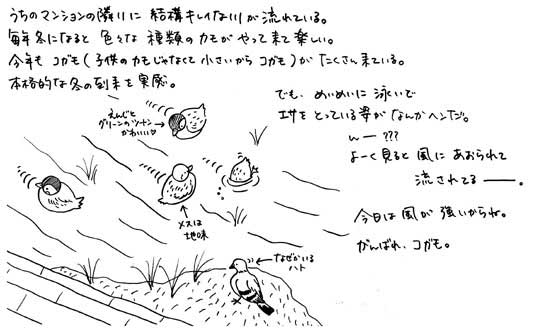 うちのマンションの隣りに 結構キレイな川が流れている。
毎年冬になると 色々な 種類のカモが やって来て楽しい。
今年も コガモ(子供のカモじゃなくて 小さいから コガモ)が たくさん来ている。
本格的な冬の到来を実感。
えんじと
グリーンのツートン
かわいい♡
でも、めいめいに 泳いで
エサをとっている姿が なんかヘンだ。
んー???
よーく見ると 風に あおられて
流されてるー。
メスは
地味
今日は 風が 強いからね。
がんばれ、コガモ。
なぜかいる
ハト